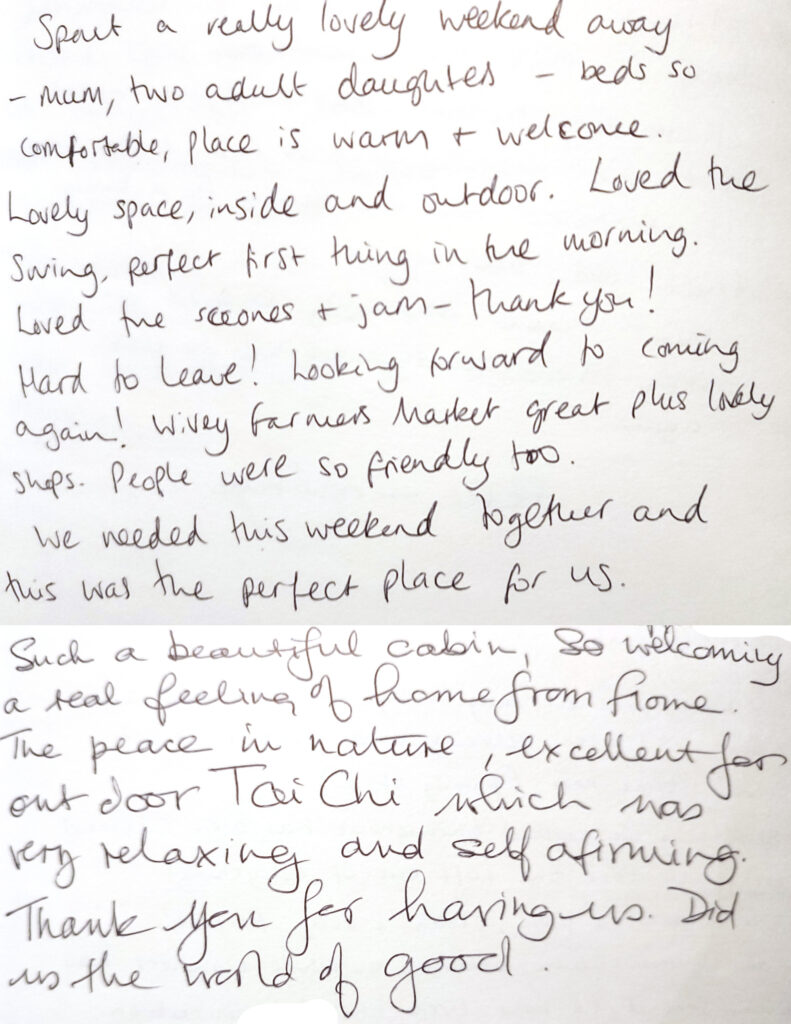 Spent a really lovely weekend away
- mum, two adult daughters - beds so
comfortable, place is warm + welcome.
Lovely space, inside and outdoor. Loved the
swing, perfect first thing in the morning.
Loved the scones + jam - thank you!
Hard to leave! Looking forward to coming
again! Wivey farmers market great plus lovely
shops. People were so friendly too.
We needed this weekend together and
this was the perfect place for us.
Such a beautiful cabin, so welcoming
a real feeling of home from home.
The peace in nature, excellent for
out door Tai Chi which was
very relaxing and self afirming.
Thank you for having us. Did
us the world of good.